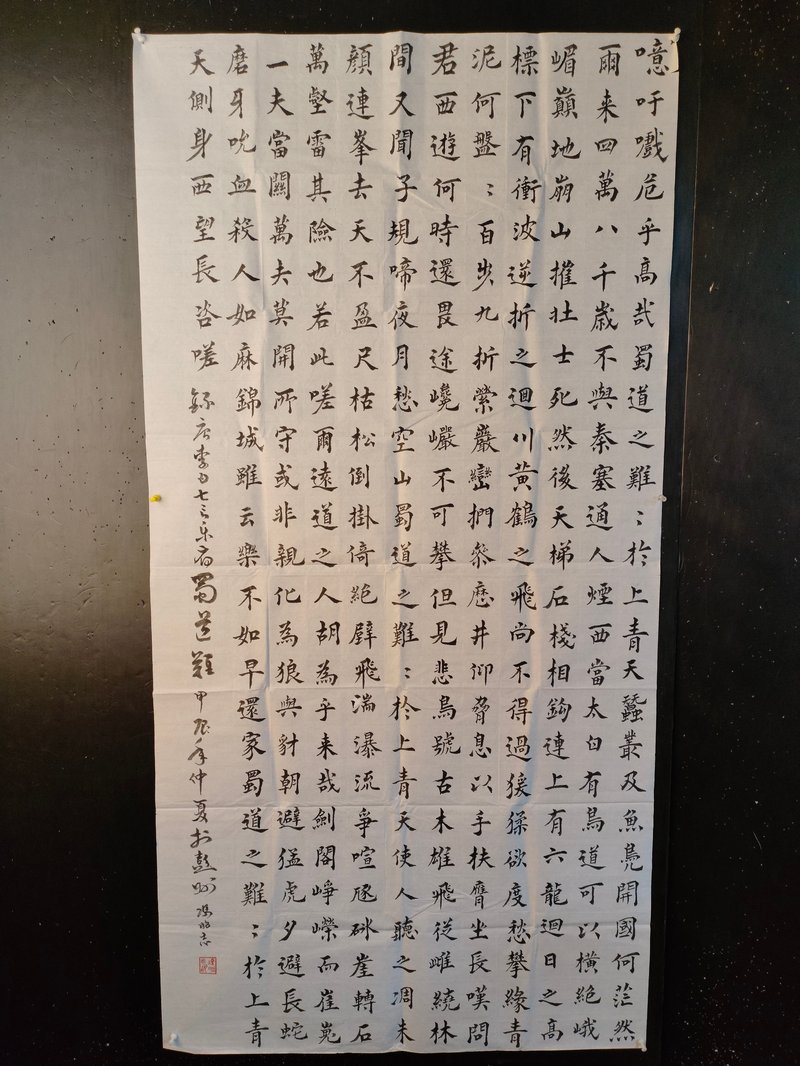 噫吁戲危乎髙哉蜀道之難〻於上青天蠶叢及魚鳧開國何茫然
爾来四萬八千歲不與秦塞通人煙西當太白有鳥道可以橫絕峨
嵋巔地崩山摧壮士死然後天梯石棧相鉤連上有六龍迴日之髙
標下有衝波逆折之迴川黃鶴之飛尚不得過猨猱欲度愁攀緣青
泥何盤〻百步九折縈巖巒捫參歷井仰脅息以手扶膺坐長嘆問
君西遊何時還畏途巉巖不可攀但見悲鳥號古木雄飛從雌繞林
間又聞子規啼夜月愁空山蜀道之難〻於上青天使人聽之凋朱
顏連峯去天不盈尺枯松倒掛倚絕壁飛湍瀑流爭喧豗砯崖轉石
萬壑雷其險也若此嗟爾遠道之人胡為乎来哉劍閣崢嶸而崔嵬
一夫當關萬夫莫開所守或非親化為狼與豺朝避猛虎夕避長蛇
磨牙吮血殺人如麻錦城雖云樂不如早還家蜀道之難〻於上青
天側身西望長咨嗟 錄唐李白七言樂府蜀道難 甲辰年仲夏於彭州